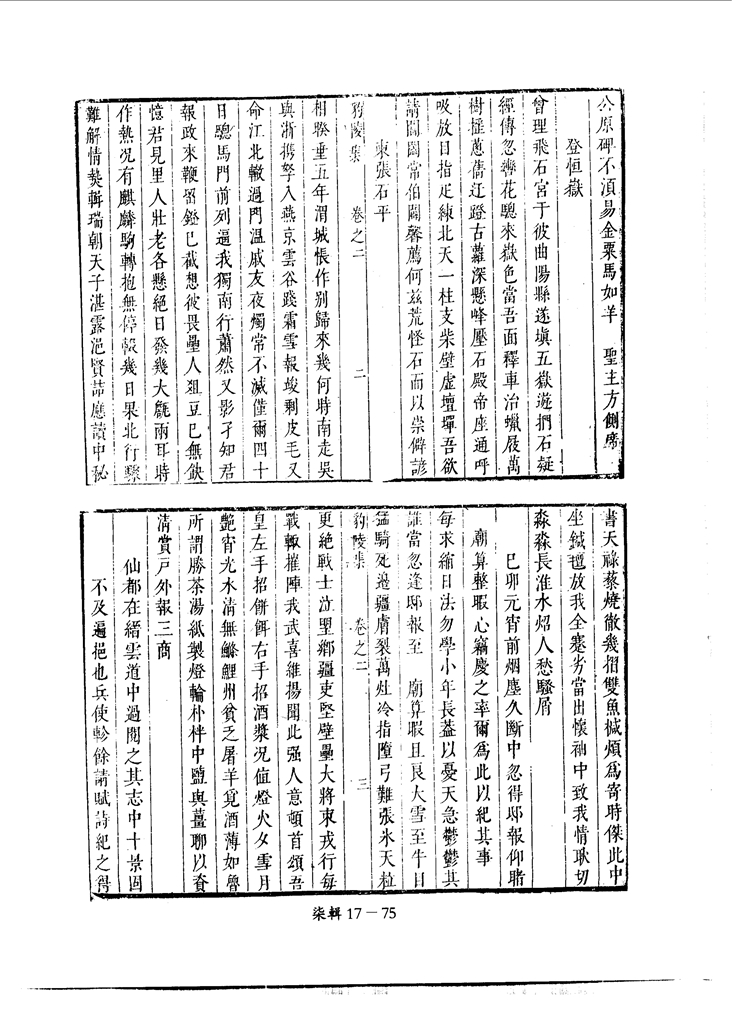 公原碑不湏易金粟馬如羊　聖主方側席
登恒嶽
曾理飛石宮于彼曲陽縣遂塡五嶽遊捫石疑
經傳忽灣花驄來嶽色當吾面釋車治蠟屐萬
樹摇蔥蒨迂蹬古蘿深懸峰壓石殿帝座通呼
吸放目指疋練北天一柱支柴壁虛壇墠吾欲
請閶闔常伯闢馨薦何兹荒怪石而以崇僻諺
柬張石平
豹陵集　卷之二　二
相睽垂五年渭城悵作别歸來幾何時南走吳
與浙携孥入燕京雲谷踐霜雪報竣剩皮毛又
命江北轍過門溫戚友夜燭常不滅僅爾四十
日驄馬門前列逼我獨南行蕭然又影孑知君
報政來鞭留鐙已截想彼畏壘人俎豆已無缺
憶君見里人壯老各懸絕日發幾大䶉兩耳時
作熱况有麒麟駒轉抱無停輟幾日果北行驟
難解情褧輯瑞朝天子湛露浥賢喆應讀中秘
書天祿藜燒徹幾摺雙魚椷煩爲寄時傑此中
坐鍼氊放我全蹇劣當出懷袖中致我情耿切
淼淼長淮水炤人愁騷屑
巳卯元宵前烟塵久斷中忽得邸報仰睹
廟算整暇心竊慶之率爾爲此以紀其事
每求縮日法勿學小年長葢以憂天急鬱鬱其
誰當忽逢邸報至　廟算暇且良大雪至牛目
猛騎死邊疆膚裂萬灶冷指墮弓難張氷天粒
豹陵集　卷之二　三
更絕戰士泣望鄉疆吏堅壁壘大將東戎行每
戰輙摧陣我武喜維揚聞此强人意頓首頌吾
皇左手招餅餌右手招酒漿况值燈火夕雪月
艷宵光水清無鯵鯉州貧乏屠羊覓酒薄如魯
所謂勝茶湯紙製燈輪朴柈中鹽與薑聊以資
清賞戸外報三商
仙都在縉雲道中過閱之其志中十景固
不及遍挹也兵使軫餘請賦詩紀之得
柒輯 17－75